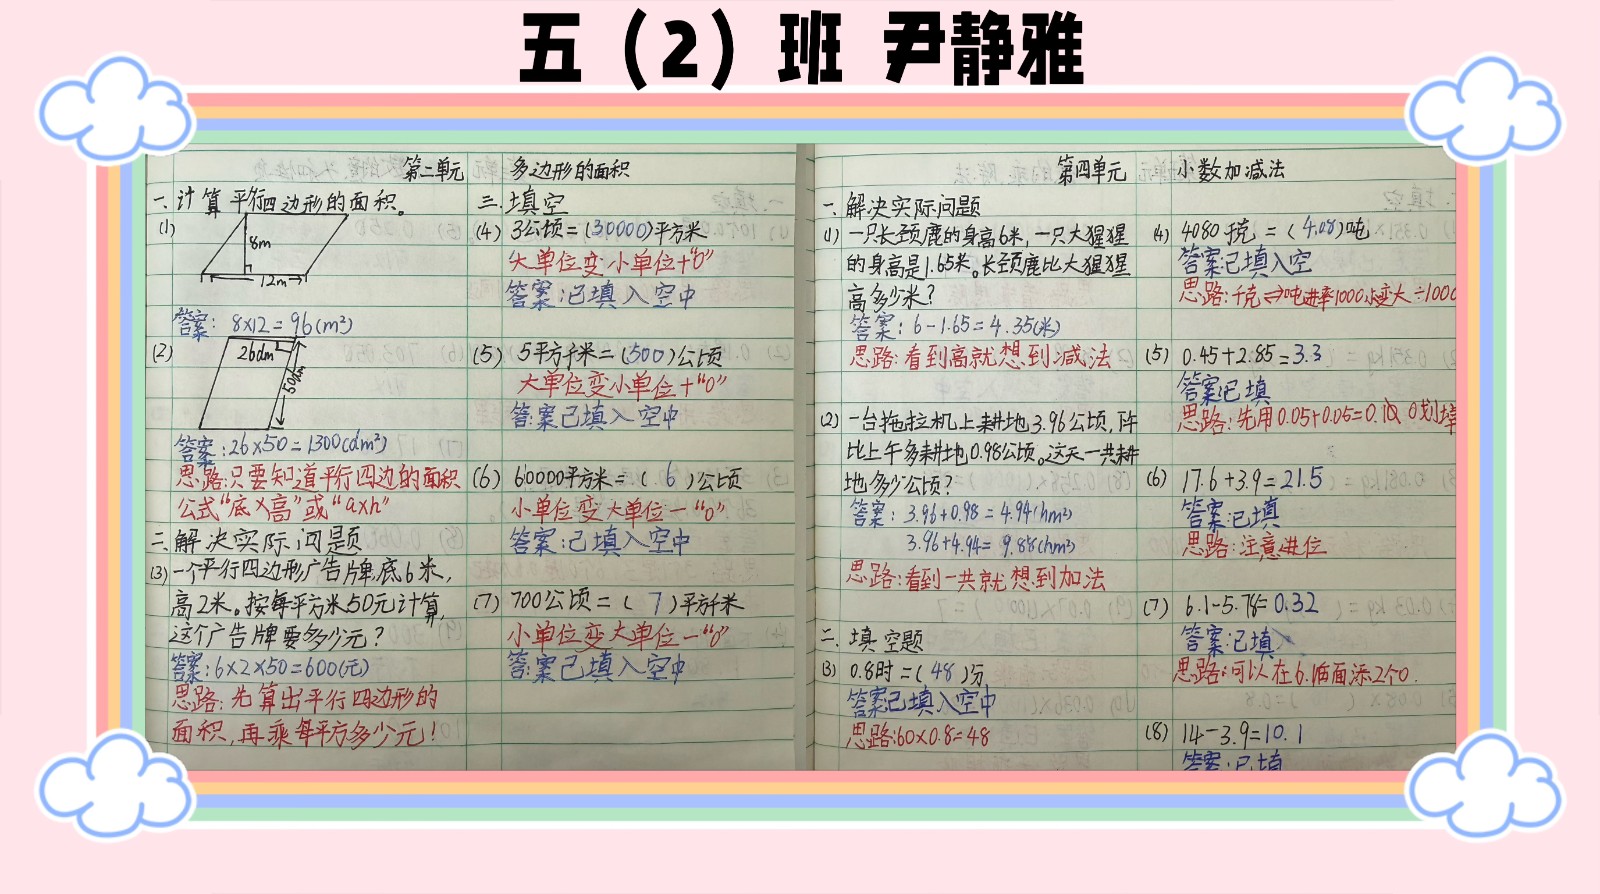 五（2）班 尹静雅
第二单元 多边形的面积
一.计算平行四边形的面积。
(1)
8m
12m
答案: 8×12=96(m²)
(2)
26dm
50dm
答案:26×50=1300(dm²)
思路:只要知道平行四边的面积
公式“底×高”或“a×h”
二.解决实际问题
(3)一个平行四边形广告牌,底6米,
高2米。按每平方米50元计算,
这个广告牌要多少元?
答案:6×2×50=600(元)
思路:先算出平行四边形的
面积,再乘每平方多少元!
三.填空
(4) 3公顷=(30000)平方米
大单位变小单位+“0”
答案:已填入空中
(5) 5平方千米=(500)公顷
大单位变小单位+“0”
答案已填入空中
(6) 60000平方米=( 6 )公顷
小单位变大单位-“0”
答案:已填入空中
(7) 700公顷=( 7 )平方千米
小单位变大单位-“0”
答案已填入空中
第四单元 小数加减法
一.解决实际问题
(1) 一只长颈鹿的身高6米,一只大猩猩
的身高是1.65米。长颈鹿比大猩猩
高多少米?
答案:6-1.65=4.35(米)
思路:看到高就想到减法
(2) 一台拖拉机上耕地3.96公顷,下午
比上午多耕地0.98公顷。这天一共耕
地多少公顷?
答案: 3.96+0.98=4.94(hm²)
3.96+4.94= 9.88(hm²)
思路:看到一共就想到加法
二.填空题
(3) 0.8时=(48)分
答案已填入空中
思路:60×0.8=48
(4) 4080千克=(4.08)吨
答案:已填入空
思路:千克⇒吨进率1000小变大÷1000
(5) 0.45+2.85=3.3
答案已填
思路:先用0.05+0.05=0.10, 0划掉
(6) 17.6+3.9=21.5
答案:已填
思路:注意进位
(7) 6.1-5.78=0.32
答案:已填
思路:可以在6.1后面添2个0.
(8) 14-3.9=10.1
答案:已填